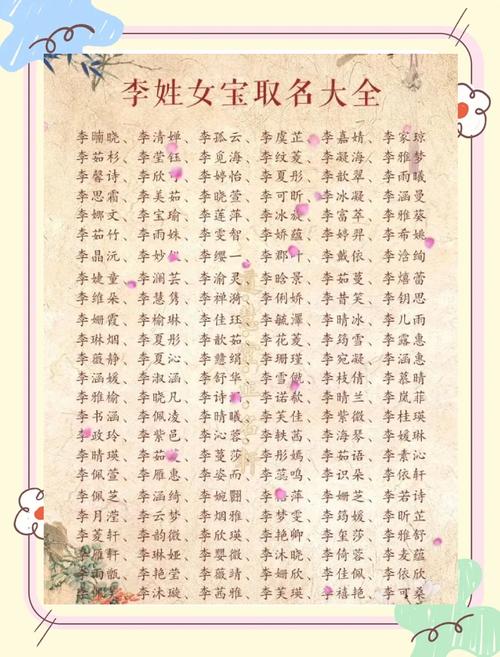 李姓女宝取名大全
李喃晓、李清婵、李孤云、李虞芷、李嘉婧、李家琼
李茹杉、李莹钰、李觅海、李纹菱、李凝海、李雅梦
李馨诗、李欣、李婷怡、李夏彤、李歆翠、李雨曦
李思霜、李美茹、李晓萱、李可昕、李冰凝、李涵曼
李娜文、李宝瑜、李莲萍、李冰旋、李富萃、李雅葵
李茹竹、李雨姝、李雯智、李娇蕴、李婷羿、李希姚
李晶沅、李妙、李缨一、李郡叶、李戴依、李浛绚
李婕童、李澜芸、李渝灵、李晗景、李茹蔓、李熺蕾
李维朵、李慧隽、李禅漪、李俐娇、李昔笑、李钥思
李姗霞、李榆琳、李佳珏、李毓泽、李晴冰、李儿雨
李琳烟、李夏彤、李歆茹、李花菱、李筠雪、李露惠
李薇静、李夏沁、李慧绢、李珊瑾、李宛凝、李涵惠
李涵媛、李淑涵、李舒华、李雪傲、李枝倩、李慕晴
李雅榆、李晓凡、李诗、李诺欷、李晴兰、李岚菲
李书涵、李佩凌、李晴曦、李芙佳、李紫微、李桂瑛
李政玲、李紫邑、李沁蓉、李轶茜、李海琴、李媛琳
李晴瑛、李茹、李蔓莎、李彤嫣、李茹语、李素沁
李佩萱、李雁惠、李姿而、李蕊鸣、李识朵、李依轩
李佩芝、李涵绮、李婉翾、李萍、李姗芝、李若诗
李月滢、李云梦、李烟雅、李梦雯、李筠媛、李昕芷
李菱轩、李韵微、李欣瑛、李艳卿、李玺莎、李雅舒
李雁轩、李琳娅、李婴微、李沐晓、李倚蓉、李麦蕴
李雨甑、李艳莹、李薇靖、李姗欣、李佳佩、李依欣
李佩、李沐璇、李茜雅、李芙瑛、李禧艳、李可桑